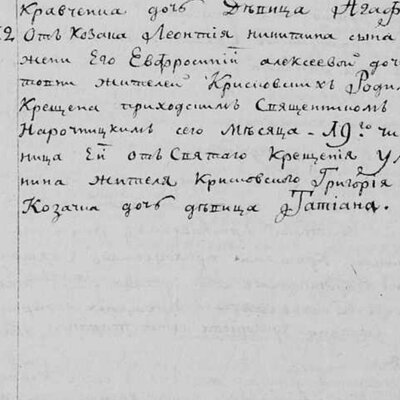 Кравченка дочь Дѣвица Агаф
12 Отъ Козака Леонтія никитина сына
жени Его Евфросиніи алексеевой доч
жителей Крисловскихъ Роди
Крещена приходскимъ Священникомъ
Нарочицкимъ сего Мѣсяца 19го чи
ница Ей отъ Святаго Крещенія у
нина жителя Крисловского Григорія
Козачка дочь дѣвица Татіана.